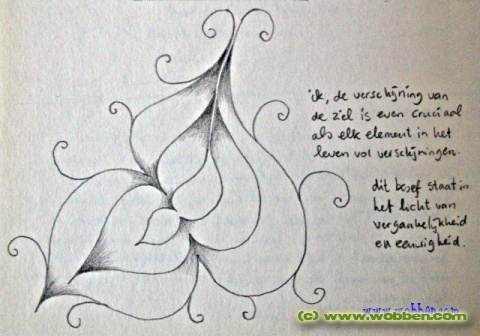 ik, de verschijning van
de ziel is even cruciaal
als elk element in het
leven vol verschijningen.
dit besef staat in
het licht van
vergankelijkheid
en eeuwigheid.
www.wobben.com
(c) www.wobben.com